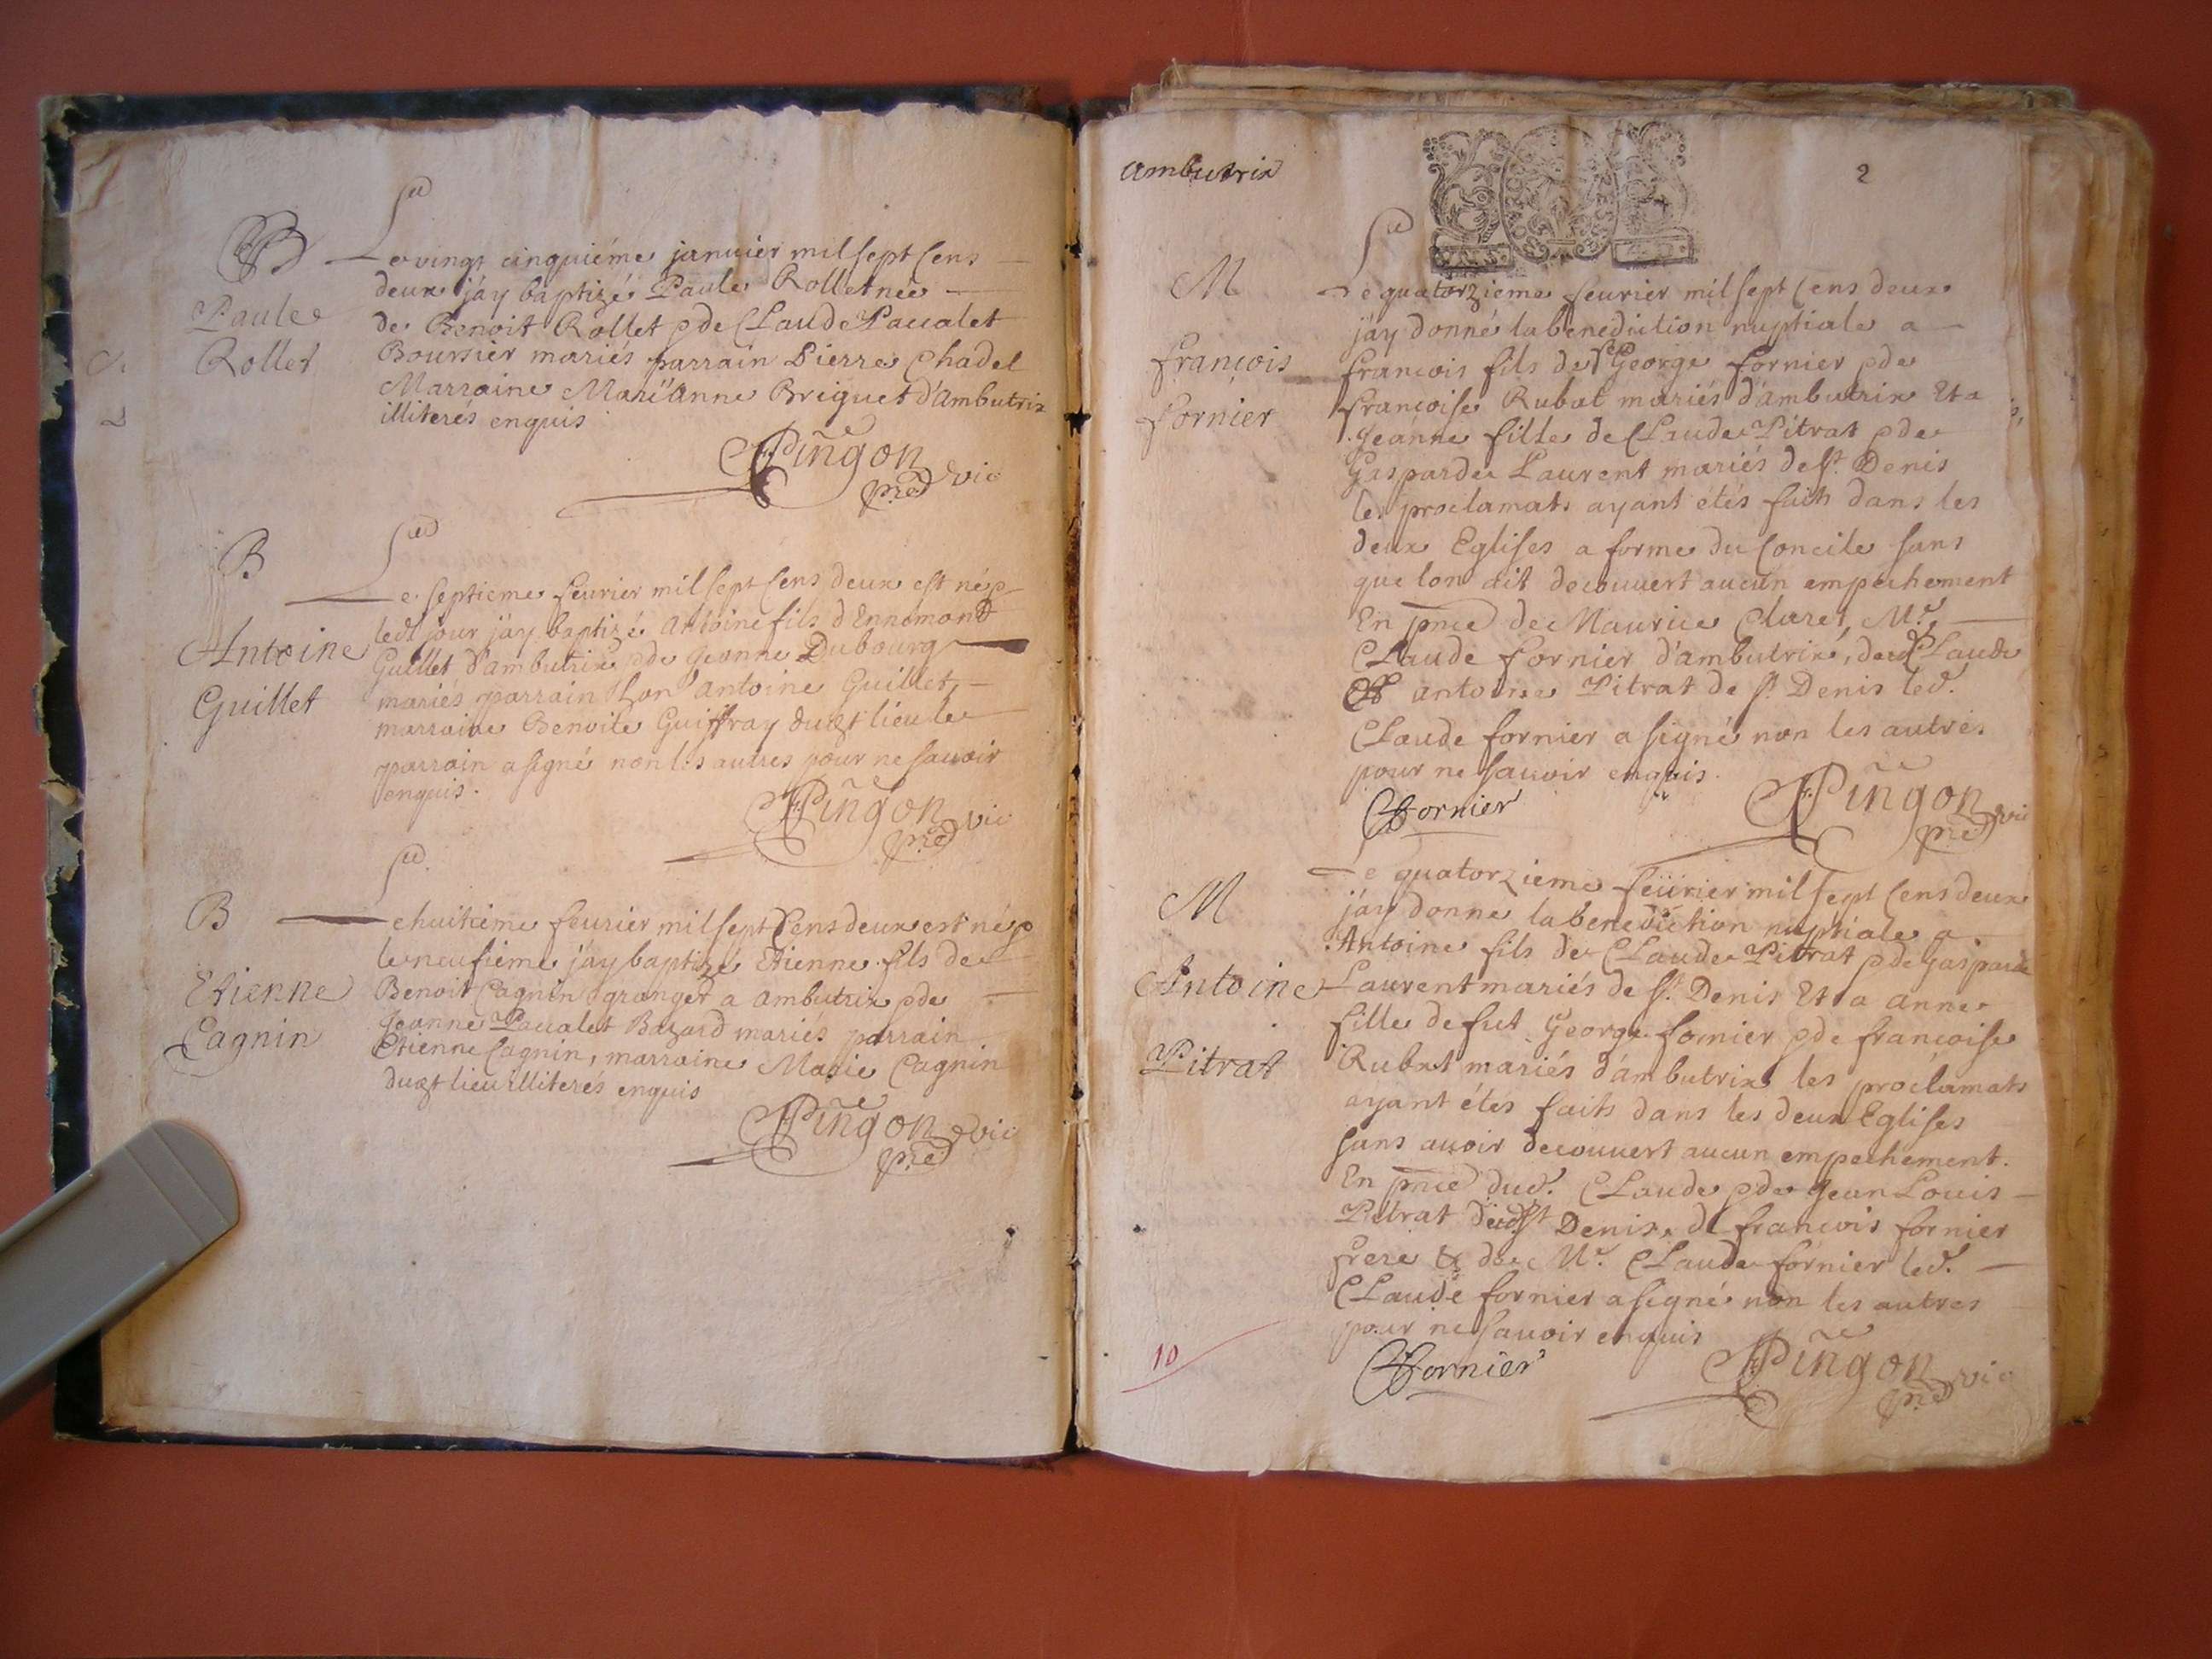 B
Paule
Rollet
Le vingt cinquiéme januier mil sept Cens
deux jáy baptizé Paule Rollet neé
de Benoit Rollet & de Claude Paualet
Boursier mariés parrain Pierre Chadel
Marraine Marie Anne Briguet d'Ambutrix
illiterés enquis
Pingon
vic
B
Antoine
Guillet
Le septieme feurier mil sept Cens deux est né &
led jour jáy baptizé Antoine fils d'Ennemond
Guillet d'ambutrix & de Jeanne Dubourg
mariés parrain hon Antoine Guillet
marraine Benoite Guiffray dudt lieu le
parrain a signé non les autres pour ne sauoir
enquis.
Pingon
vic
B
Etienne
Cagnin
Le huitieme feurier mil sept Cens deux est né &
le neufieme jáy baptizé Etienne fils de
Benoit Cagnin granger a Ambutrix & de
Jeanne Paualet Buzard mariés parrain
Etienne Cagnin, marraine Marie Cagnin
dudt lieu illiterés enquis
Pingon
vic
ambutrix
2
M
françois
fornier
Le quatorzieme feurier mil sept Cens deux
jáy donné la benediction nuptiale a
françois fils de George fornier & de
françoise Rubat mariés d'ambutrix Et a
Jeanne fille de Claude Pitrat & de
Gasparde Laurent mariés de st. Denis
les proclamats ayant étés faits dans les
deux Eglises a forme du Concile sans
que lon ait decouuert aucun empechement
En pnce de Maurice Claret, Mr.
Claude fornier d'ambutrix, dud Claude
& antoine Pitrat de st. Denis led.
Claude fornier a signé non les autres
pour ne sauoir enquis.
Fornier
Pingon
vic
M
Antoine
Pitrat
Le quatorzieme feurier mil sept Cens deux
jáy donné la benediction nuptiale a
Antoine fils de Claude Pitrat & de Gasparde
Laurent mariés de st. Denis Et a anne
fille de fut George fornier & de françoise
Rubat mariés d'ambutrix les proclamats
ayant étés faits dans les deux Eglises
sans auoir decouuert aucun empechement.
En pnce dud. Claude & de Jean Louis
Pitrat dudst Denis, de françois fornier
frere & de Mr. Claude fornier led.
Claude fornier a signé non les autres
pour ne sauoir enquis
Fornier
Pingon
vic
10